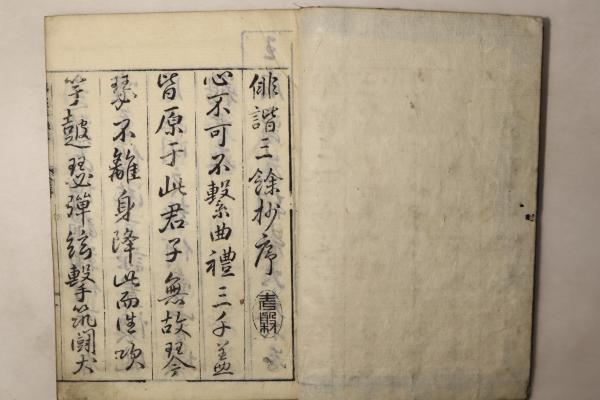 俳諧三餘抄序
心不可不繫曲禮三千蓋
皆原于此君子無故琴
瑟不離身降此而往吹
竽鼓瑟彈絃擊筑鬪犬